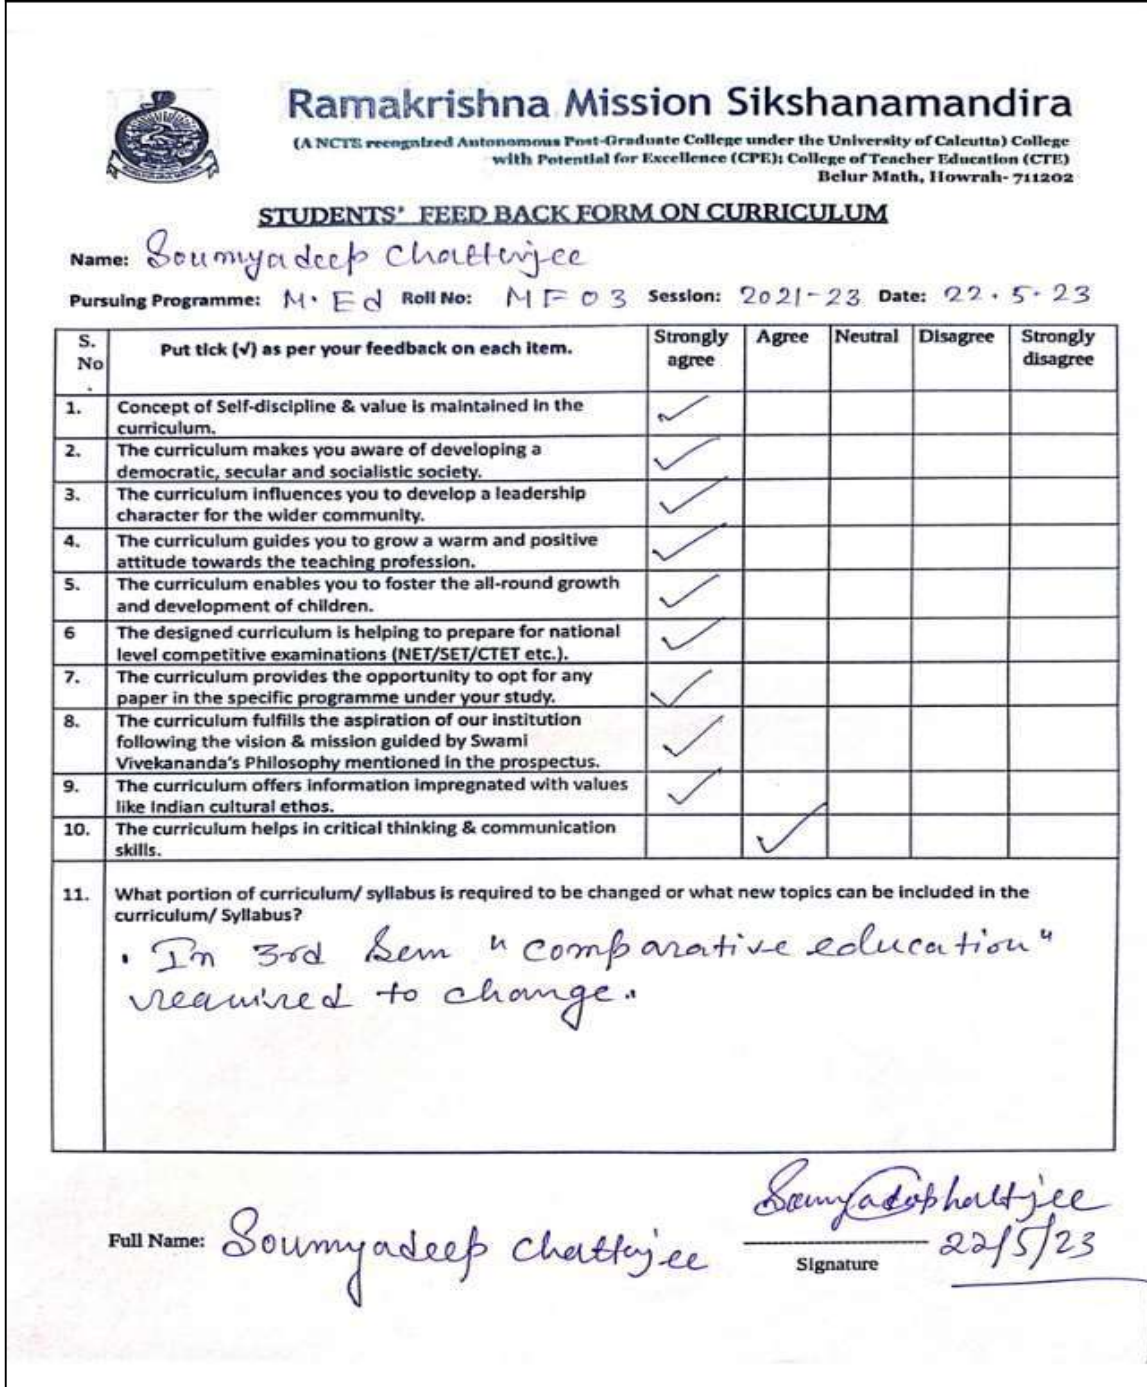 Ramakrishna Mission Sikshanamandira
(A NCTE recognized Autonomous Post-Graduate College under the University of Calcutta) College
with Potential for Excellence (CPE); College of Teacher Education (CTE)
Belur Math, Howrah- 711202
STUDENTS' FEED BACK FORM ON CURRICULUM
Name: Soumyadeep Chatterjee
Pursuing Programme: M.Ed Roll No: MF03 Session: 2021-23 Date: 22.5.23
S. No. Put tick (√) as per your feedback on each item. Strongly agree Agree Neutral Disagree Strongly disagree
1. Concept of Self-discipline & value is maintained in the
curriculum. ✓
2. The curriculum makes you aware of developing a
democratic, secular and socialistic society. ✓
3. The curriculum influences you to develop a leadership
character for the wider community. ✓
4. The curriculum guides you to grow a warm and positive
attitude towards the teaching profession. ✓
5. The curriculum enables you to foster the all-round growth
and development of children. ✓
6 The designed curriculum is helping to prepare for national
level competitive examinations (NET/SET/CTET etc.). ✓
7. The curriculum provides the opportunity to opt for any
paper in the specific programme under your study. ✓
8. The curriculum fulfills the aspiration of our institution
following the vision & mission guided by Swami
Vivekananda's Philosophy mentioned in the prospectus. ✓
9. The curriculum offers information impregnated with values
like Indian cultural ethos. ✓
10. The curriculum helps in critical thinking & communication
skills. ✓
11. What portion of curriculum/ syllabus is required to be changed or what new topics can be included in the
curriculum/ Syllabus?
• In 3rd Sem "comparative education"
required to change.
Soumyadeep Chatterjee
Full Name: Soumyadeep Chatterjee 22/5/23
Signature